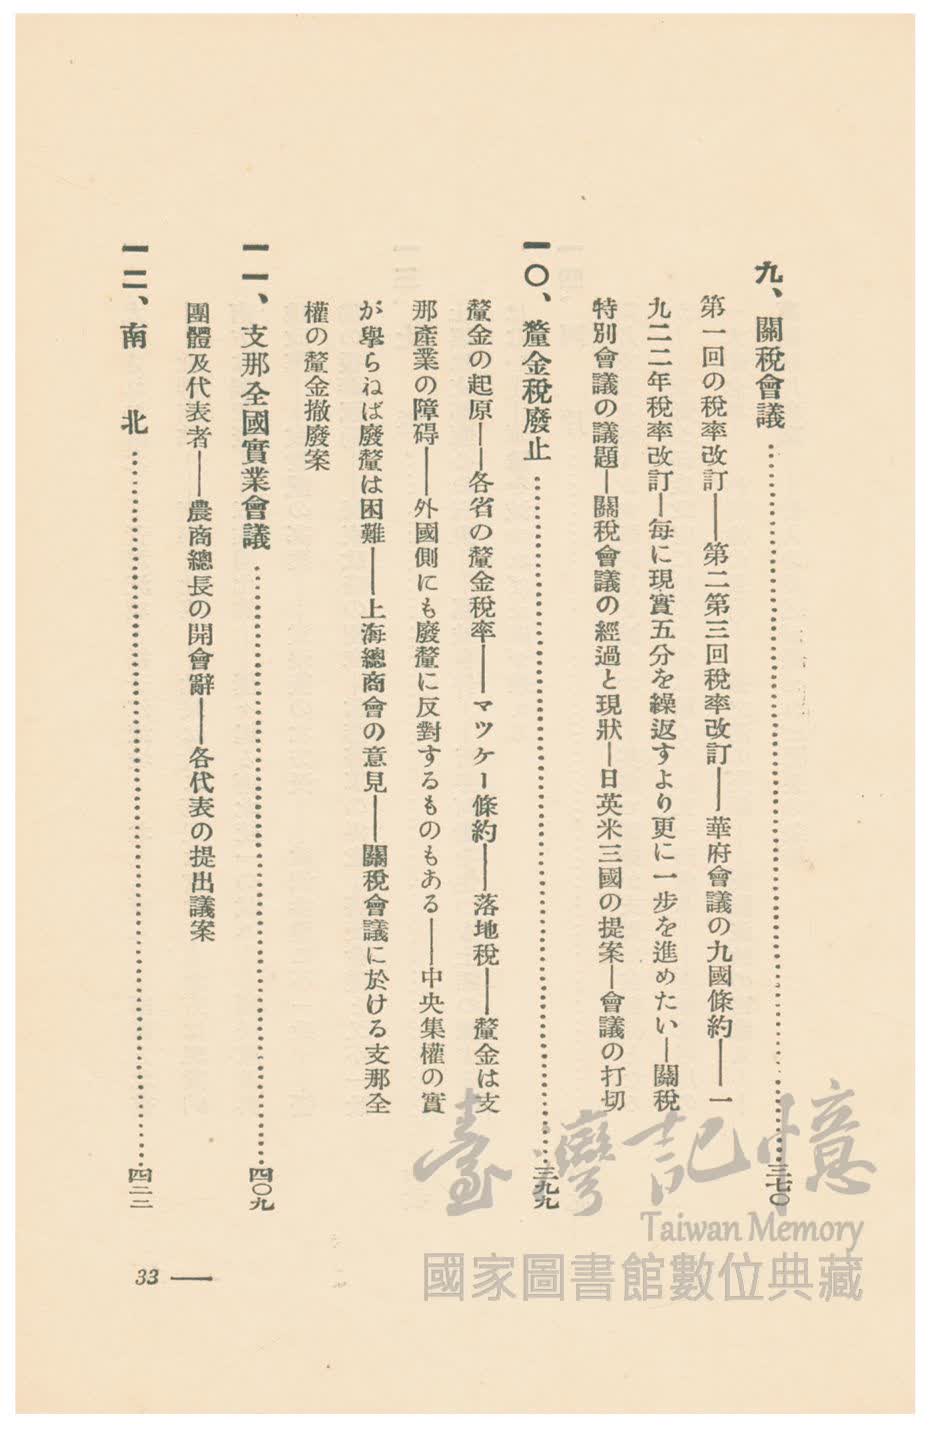 九、關稅會議……三七〇
第一回の稅率改訂――第二第三回稅率改訂――華府會議の九國條約――一
九二二年稅率改訂―每に現實五分を繰返すより更に一步を進めたい―關稅
特別會議の議題―關稅會議の經過と現狀―日英米三國の提案―會議の打切
一〇、釐金稅廢止……三九九
釐金の起原――各省の釐金稅率――マツケー條約――落地稅――釐金は支
那產業の障碍――外國側にも廢釐に反對するものもある――中央集權の實
が擧らねば廢釐は困難――上海總商會の意見――關稅會議に於ける支那全
權の釐金撤廢案
一一、支那全國實業會議……四〇九
團體及代表者――農商總長の開會辭――各代表の提出議案
一二、南　北……四二二
33 ―
臺灣記憶
Taiwan Memory
國家圖書館數位典藏